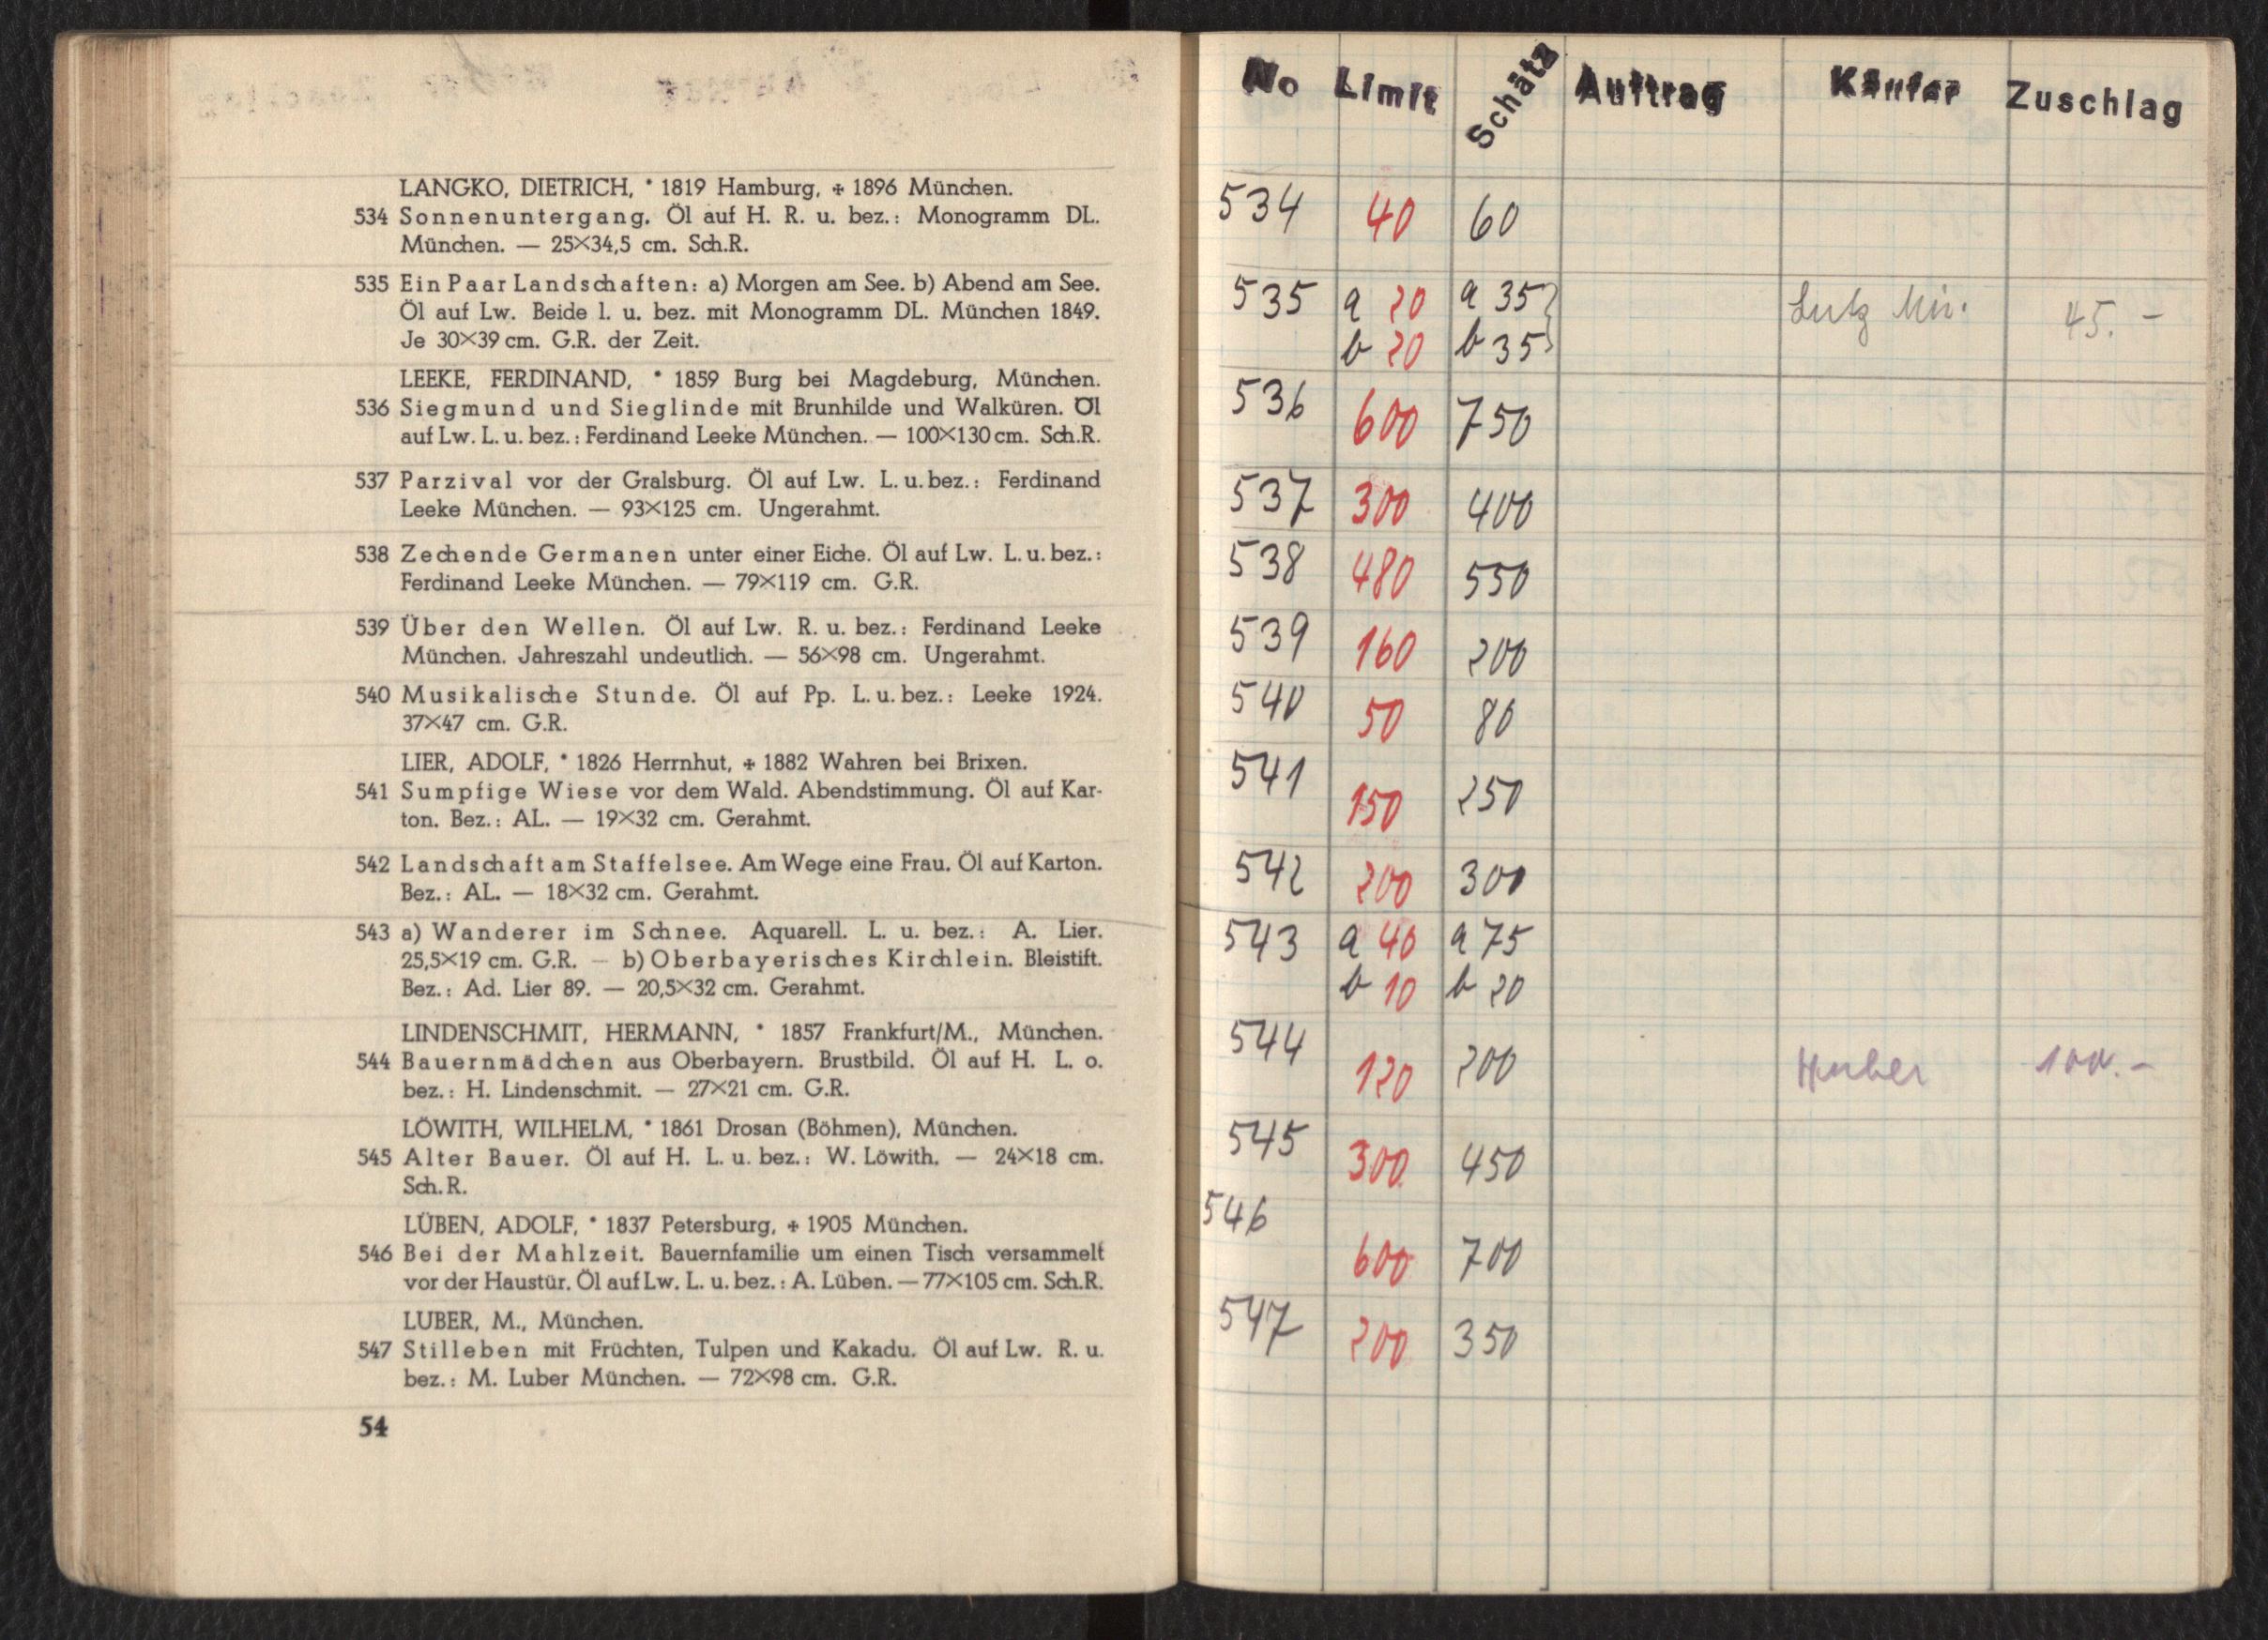 LANGKO, DIETRICH, * 1819 Hamburg, ✠ 1896 München.
534 Sonnenuntergang. Öl auf H. R. u. bez.: Monogramm DL.
München. — 25×34,5 cm. Sch.R.
535 Ein Paar Landschaften: a) Morgen am See. b) Abend am See.
Öl auf Lw. Beide l. u. bez. mit Monogramm DL. München 1849.
Je 30×39 cm. G.R. der Zeit.
LEEKE, FERDINAND, * 1859 Burg bei Magdeburg, München.
536 Siegmund und Sieglinde mit Brunhilde und Walküren. Öl
auf Lw. L. u. bez.: Ferdinand Leeke München. — 100×130 cm. Sch.R.
537 Parzival vor der Gralsburg. Öl auf Lw. L. u. bez.: Ferdinand
Leeke München. — 93×125 cm. Ungerahmt.
538 Zechende Germanen unter einer Eiche. Öl auf Lw. L. u. bez.:
Ferdinand Leeke München. — 79×119 cm. G.R.
539 Über den Wellen. Öl auf Lw. R. u. bez.: Ferdinand Leeke
München. Jahreszahl undeutlich. — 56×98 cm. Ungerahmt.
540 Musikalische Stunde. Öl auf Pp. L. u. bez.: Leeke 1924.
37×47 cm. G.R.
LIER, ADOLF, * 1826 Herrnhut, ✠ 1882 Wahren bei Brixen.
541 Sumpfige Wiese vor dem Wald. Abendstimmung. Öl auf Kar-
ton. Bez.: AL. — 19×32 cm. Gerahmt.
542 Landschaft am Staffelsee. Am Wege eine Frau. Öl auf Karton.
Bez.: AL. — 18×32 cm. Gerahmt.
543 a) Wanderer im Schnee. Aquarell. L. u. bez.: A. Lier.
25,5×19 cm. G.R. — b) Oberbayerisches Kirchlein. Bleistift.
Bez.: Ad. Lier 89. — 20,5×32 cm. Gerahmt.
LINDENSCHMIT, HERMANN, * 1857 Frankfurt/M., München.
544 Bauernmädchen aus Oberbayern. Brustbild. Öl auf H. L. o.
bez.: H. Lindenschmit. — 27×21 cm. G.R.
LÖWITH, WILHELM, * 1861 Drosan (Böhmen), München.
545 Alter Bauer. Öl auf H. L. u. bez.: W. Löwith. — 24×18 cm.
Sch.R.
LÜBEN, ADOLF, * 1837 Petersburg, ✠ 1905 München.
546 Bei der Mahlzeit. Bauernfamilie um einen Tisch versammelt
vor der Haustür. Öl auf Lw. L. u. bez.: A. Lüben. — 77×105 cm. Sch.R.
LUBER, M., München.
547 Stilleben mit Früchten, Tulpen und Kakadu. Öl auf Lw. R. u.
bez.: M. Luber München. — 72×98 cm. G.R.
54
No Limit Schätz Auftrag Käufer Zuschlag
534 40 60
535 a 20 a 35 Lutz Mü. 45.-
b 20 b 35
536 600 750
537 300 400
538 480 550
539 160 200
540 50 80
541 150 250
542 200 300
543 a 40 a 75
b 10 b 20
544 120 200 Huber 100.-
545 300 450
546 600 700
547 200 350